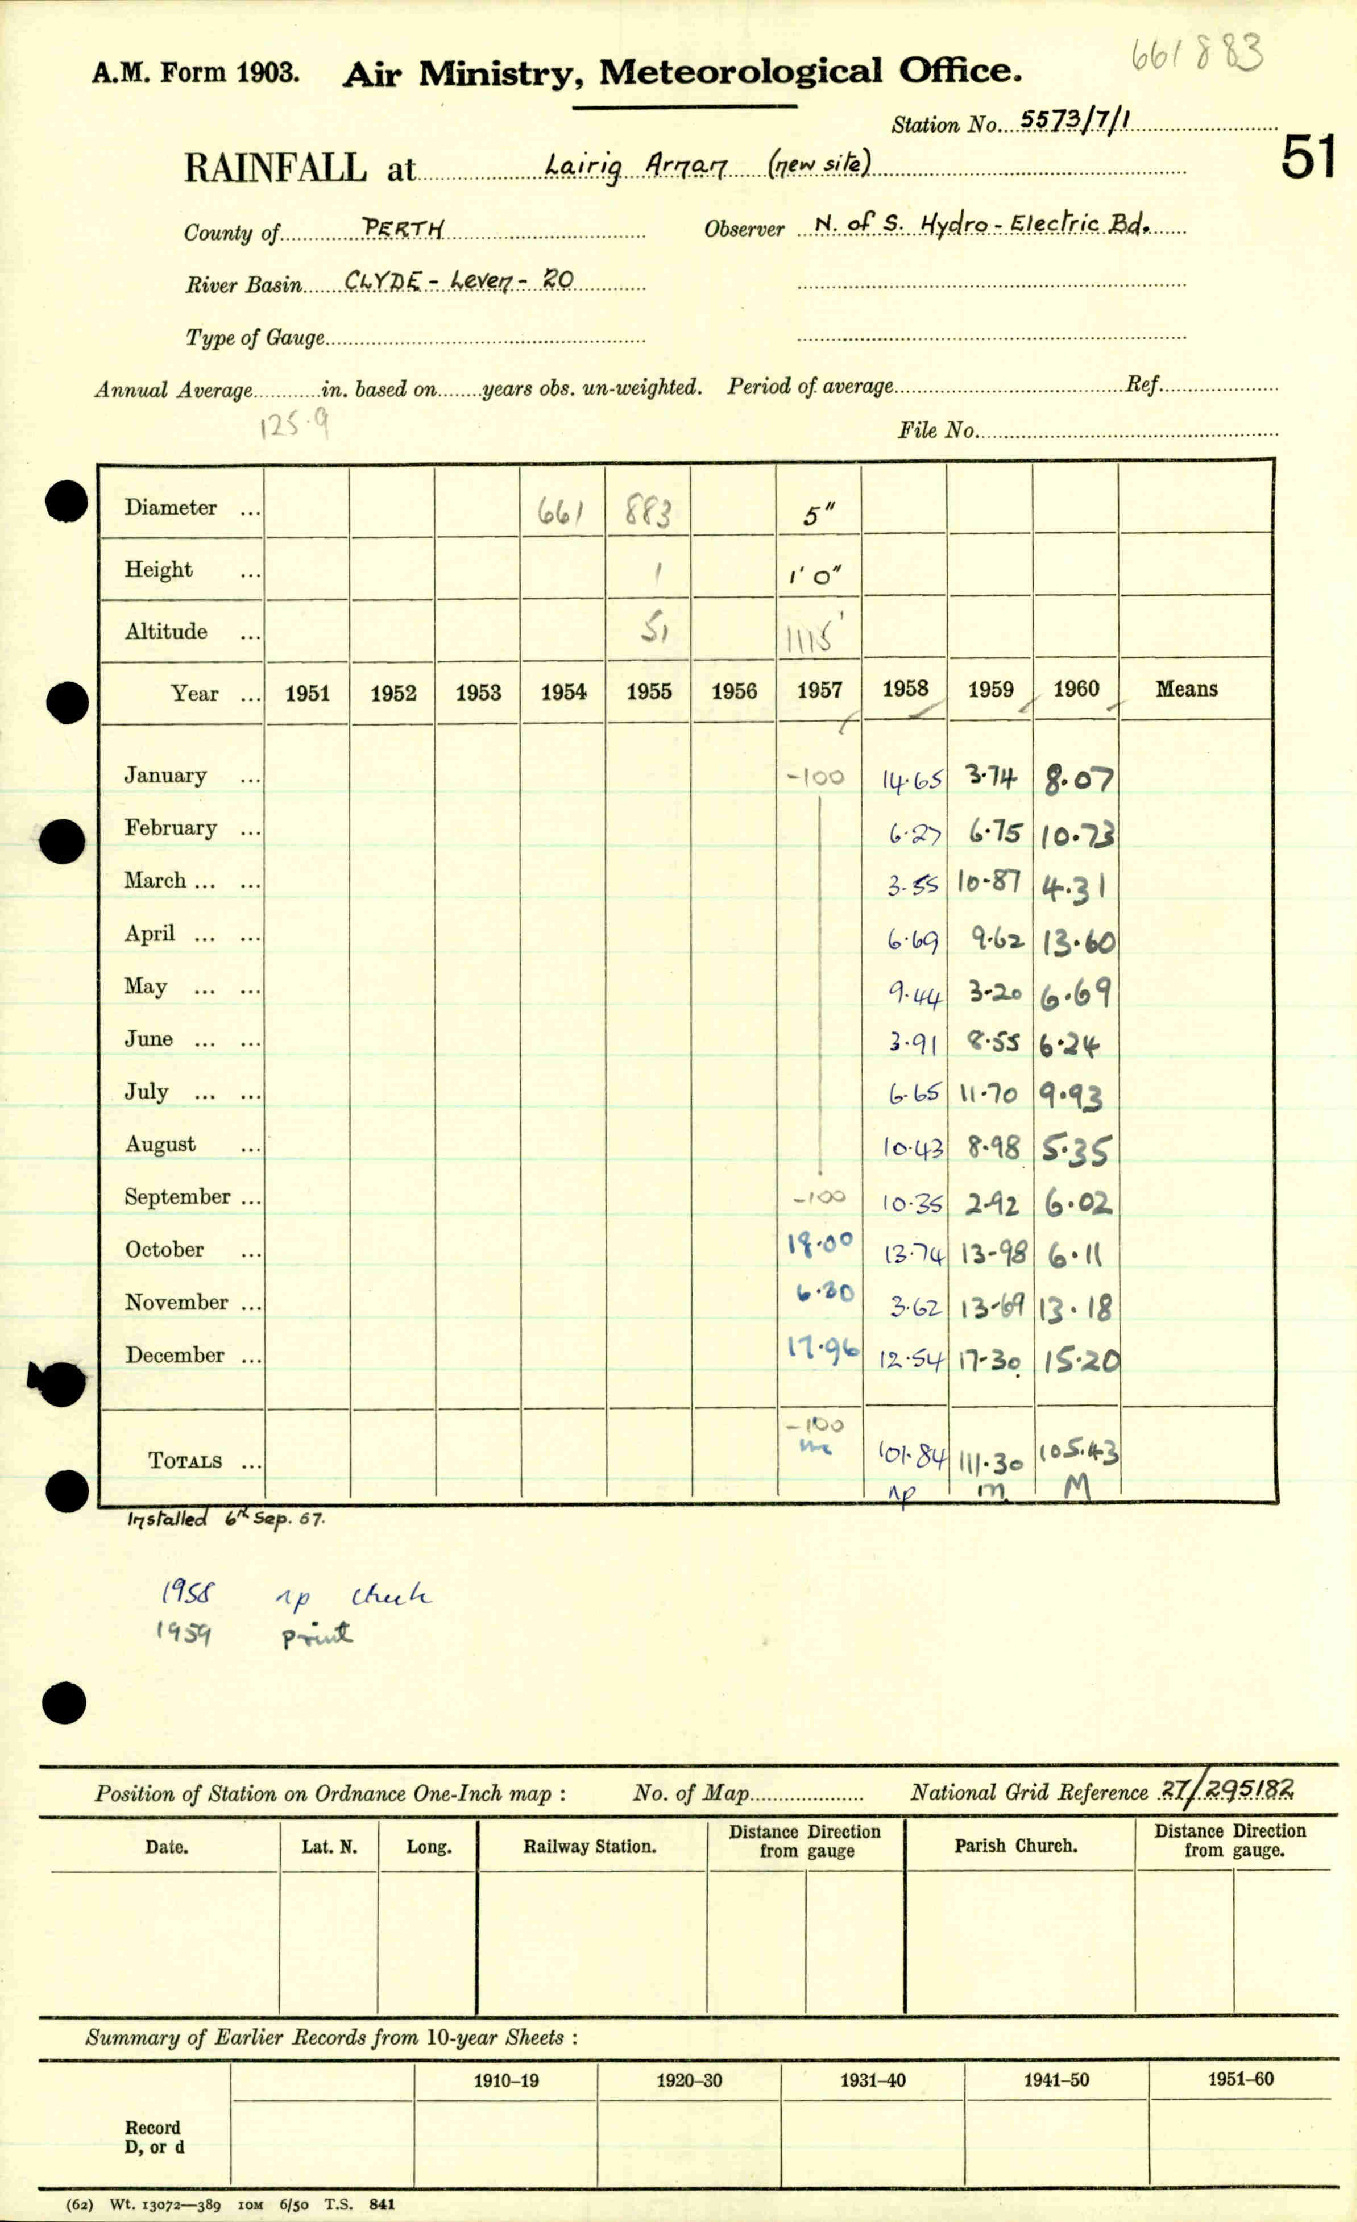 661883
A.M. Form 1903. Air Ministry, Meteorological Office.
Station No. 5573/7/1
51
RAINFALL at Lairig Arnan (new site)
County of PERTH Observer N. of S. Hydro-Electric Bd.
River Basin CLYDE - Leven - 20
Type of Gauge
Annual Average in. based on years obs. un-weighted. Period of average Ref.
125.9
File No.
Diameter ... 661 883 5"
Height ... 1 1' 0"
Altitude ... 51 1115'
Year ... 1951 1952 1953 1954 1955 1956 1957 1958 1959 1960 Means
January ... -100 14.65 3.74 8.07
February ... 6.27 6.75 10.73
March ... ... 3.55 10.87 4.31
April ... ... 6.69 9.62 13.60
May ... ... 9.44 3.20 6.69
June ... ... 3.91 8.55 6.24
July ... ... 6.65 11.70 9.93
August ... 10.43 8.98 5.35
September ... -100 10.35 2.92 6.02
October ... 18.00 13.74 13.98 6.11
November ... 6.30 3.62 13.69 13.18
December ... 17.96 12.54 17.30 15.20
-100
TOTALS ... 101.84 111.30 105.43
np m M
Installed 6th Sep. 57.
1958 np check
1959 print
Position of Station on Ordnance One-Inch map : No. of Map National Grid Reference 27/295182
Date. Lat. N. Long. Railway Station. Distance from gauge Direction Parish Church. Distance from gauge. Direction
Summary of Earlier Records from 10-year Sheets :
1910–19 1920–30 1931–40 1941–50 1951–60
Record
D, or d
(62) Wt. 13072—389 10M 6/50 T.S. 841